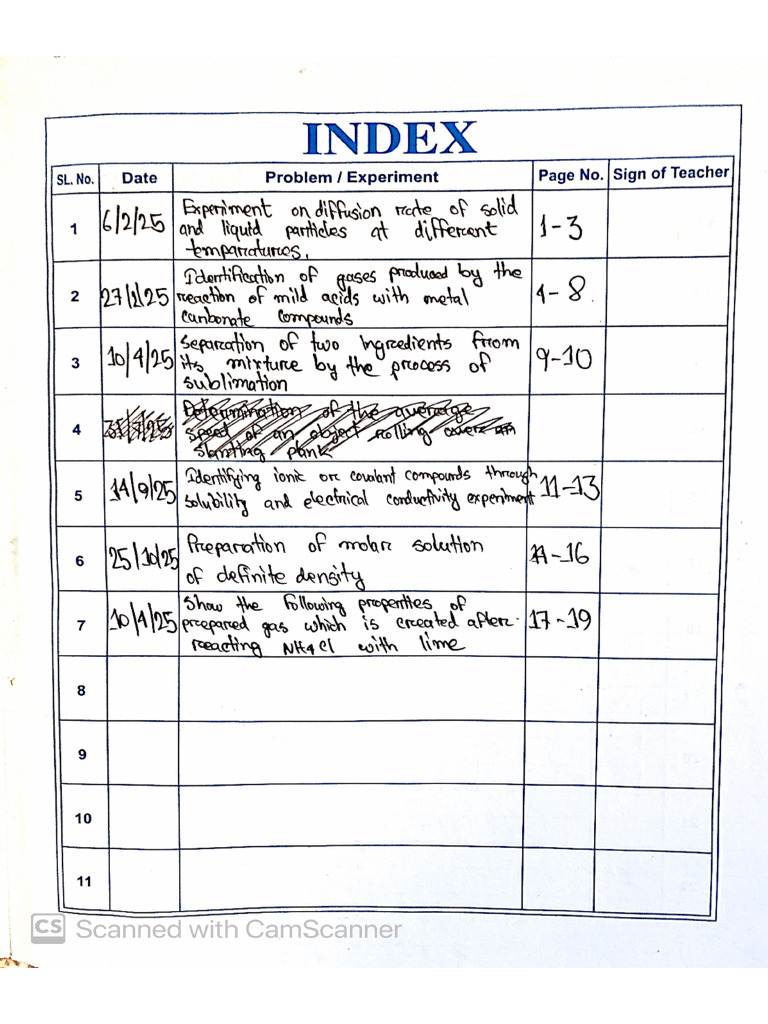 INDEX
SL. No. Date Problem / Experiment Page No. Sign of Teacher
1 6/2/25 Experiment on diffusion rate of solid
and liquid particles at different
temparatures. 1-3
2 27/2/25 Identification of gases produced by the
reaction of mild acids with metal
carbonate compounds 4-8
3 10/4/25 Separation of two ingredients from
its mixture by the process of
sublimation 9-10
4 Determination of the average
speed of an object rolling over an
slanting plank
5 14/9/25 Identifying ionic or covalant compounds through
solubility and electrical conductivity experiment 11-13
6 25/10/25 Preparation of molar solution
of definite density 14-16
7 10/4/25 Show the following properties of
prepared gas which is created after
reacting NH4Cl with lime 17-19
8
9
10
11
CS Scanned with CamScanner